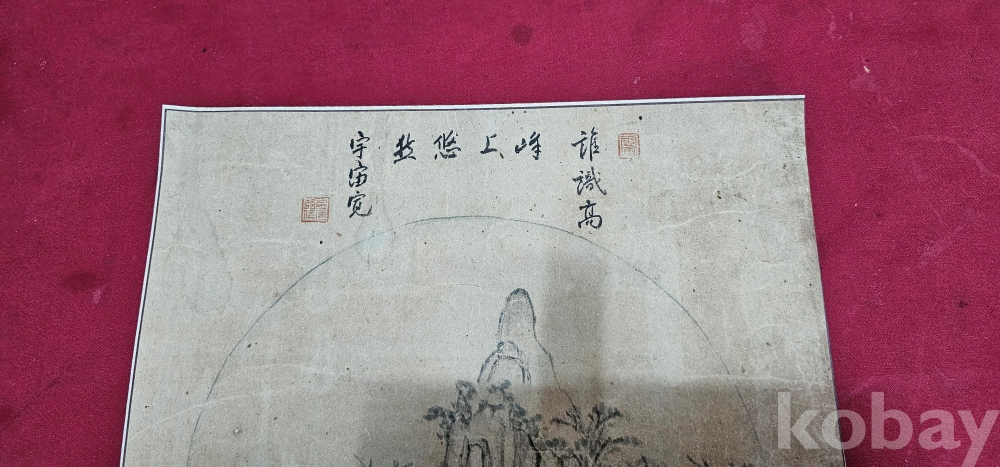 誰識高
峰
上
悠
然
宇宙寬
kobay